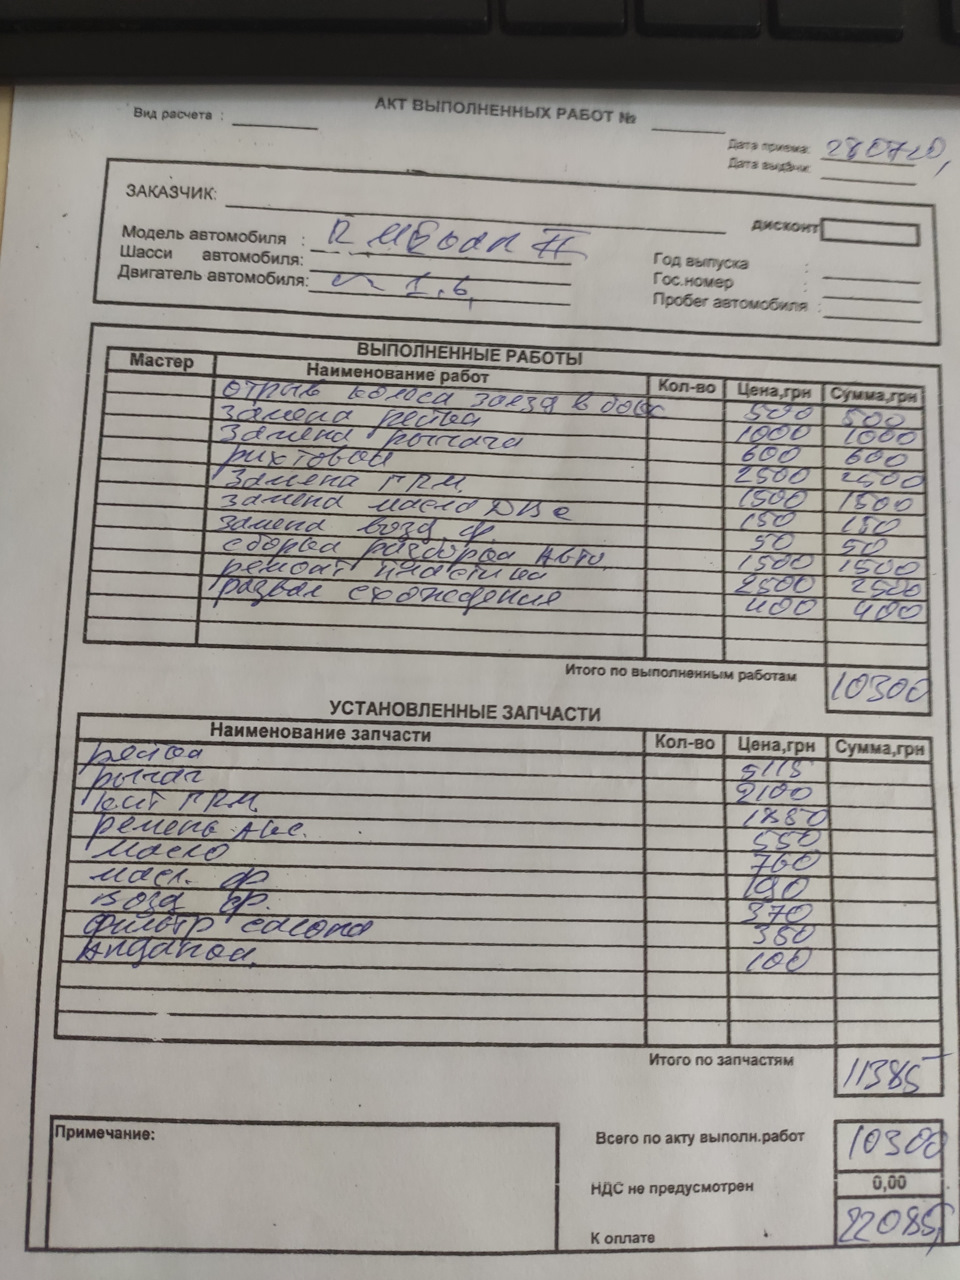 АКТ ВЫПОЛНЕННЫХ РАБОТ №
Вид расчета :
Дата приема: 280720,
Дата выдачи:
ЗАКАЗЧИК:
дисконт
Модель автомобиля : R Меган II
Шасси автомобиля:
Двигатель автомобиля: 1.6,
Год выпуска :
Гос.номер :
Пробег автомобиля :
ВЫПОЛНЕННЫЕ РАБОТЫ
Мастер Наименование работ Кол-во Цена,грн Сумма,грн
отрыв колеса заезд в бокс 500 500
замена рейка 1000 1000
замена рычага 600 600
рихтовка 2500 2500
замена ГРМ 1500 1500
замена масла ДВС 150 150
замена возд ф 50 50
сборка разборка Авто 1500 1500
ремонт пластика 2500 2500
развал схождения 400 400
Итого по выполненным работам 10300
УСТАНОВЛЕННЫЕ ЗАПЧАСТИ
Наименование запчасти Кол-во Цена,грн Сумма,грн
рейка 5115
рычаг 2100
ГРМ 1850
ремень 550
масло 760
масл. ф 190
возд ф. 370
фильтр салона 350
100
Итого по запчастям 11385
Примечание:
Всего по акту выполн.работ 10300
НДС не предусмотрен 0,00
К оплате 22085,